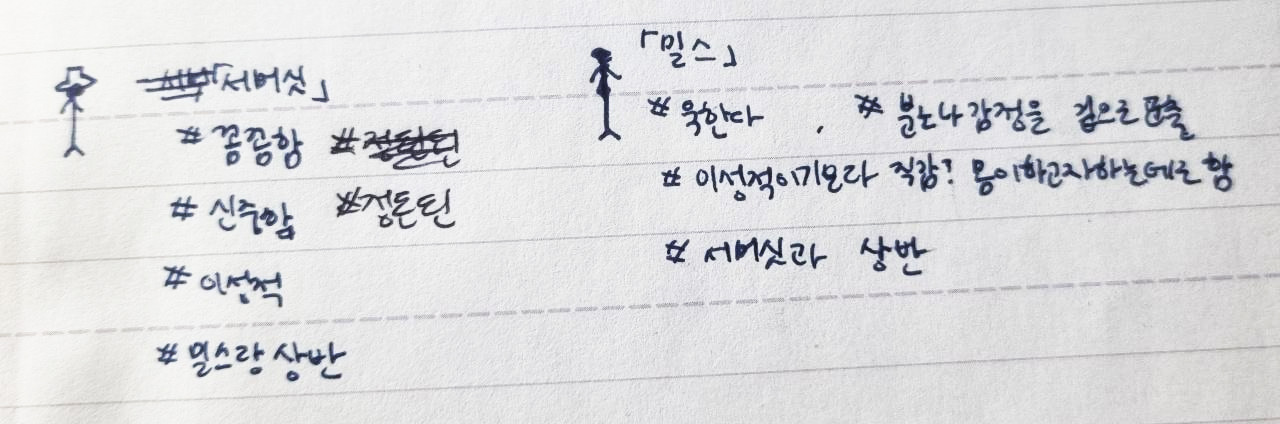 「서머싯」
# 꼼꼼함
# 신중함 #정돈된
# 이성적
# 밀스랑 상반
「밀스」
# 욱한다 , # 분노나 감정을 겉으로 표출
# 이성적이기보다 직감? 몸이하고자하는데로 함
# 서머싯과 상반